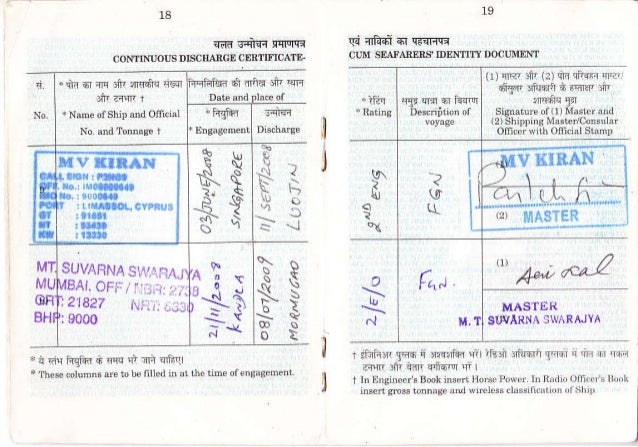 18
चलत उन्मोचन प्रमाणपत्र
CONTINUOUS DISCHARGE CERTIFICATE-
सं.
* पोत का नाम और शासकीय संख्या
और टनभार †
निम्नलिखित की तारीख और स्थान
Date and place of
No.
* Name of Ship and Official
No. and Tonnage †
* नियुक्ति
* Engagement
उन्मोचन
Discharge
MV KIRAN
CALL SIGN : P3HG9
OFF. No.: IMO9000649
IMO No. : 9000649
PORT : LIMASSOL, CYPRUS
GT : 91651
NT : 53430
KW : 13330
03/JUNE/2008
SINGAPORE
11/SEPT/2008
LUOJIN
MT. SUVARNA SWARAJYA
MUMBAI. OFF / NBR: 2738
GRT: 21827 NRT: 6330
BHP: 9000
21/11/2008
KANDLA
08/07/2009
MORMUGAO
* ये स्तंभ नियुक्ति के समय भरे जाने चाहिए।
* These columns are to be filled in at the time of engagement.
19
एवं नाविकों का पहचानपत्र
CUM SEAFARERS' IDENTITY DOCUMENT
* रेटिंग
* Rating
समुद्र यात्रा का विवरण
Description of
voyage
(1) मास्टर और (2) पोत परिवहन मास्टर/
कौंसुलर अधिकारी के हस्ताक्षर और
शासकीय मुद्रा
Signature of (1) Master and
(2) Shipping Master/Consular
Officer with Official Stamp
2ND ENG
FGN
MV KIRAN
(2) MASTER
2/E/O
FGN.
(1)
MASTER
M. T. SUVARNA SWARAJYA
† इंजिनिअर पुस्तक में अश्वशक्ति भरें। रेडिओ अधिकारी पुस्तकों में पोत का सकल
टनभार और बेतार वर्गीकरण भरें।
† In Engineer's Book insert Horse Power. In Radio Officer's Book
insert gross tonnage and wireless classification of Ship.